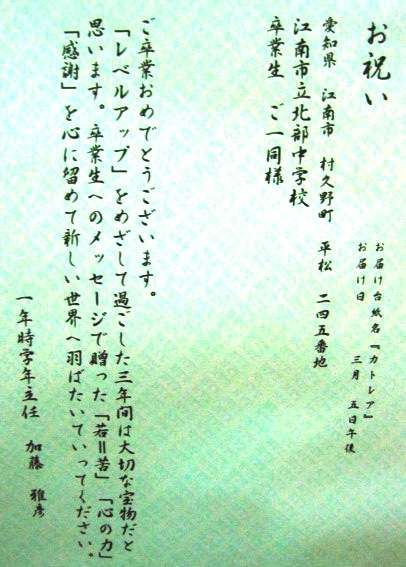 お祝い
お届け台紙名『カトレア』
お届け日　三月　五日午後
愛知県　江南市　村久野町　平松　二四五番地
江南市立北部中学校
卒業生　ご一同様
ご卒業おめでとうございます。
「レベルアップ」をめざして過ごした三年間は大切な宝物だと
思います。卒業生へのメッセージで贈った「若＝苦」「心の力」
「感謝」を心に留めて新しい世界へ羽ばたいていってください。
一年時学年主任　加藤　雅彦